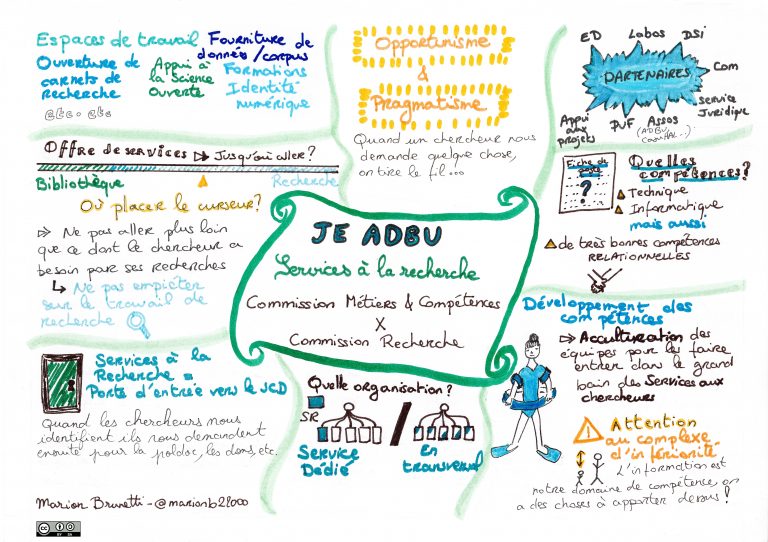 Espaces de travail
Fourniture de
données/corpus
Ouverture de
carnets de
recherche
Appui à
la Science
ouverte
Formations
Identité
numérique
etc. etc
Opportunisme
&
Pragmatisme
Quand un chercheur nous
demande quelque chose,
on tire le fil...
ED
Labos
DSI
PARTENAIRES
Com
Service
Juridique
Appui
aux
projets
PUF
Assos
(ADBU
CasuHAL..)
Offre de services ⇨ Jusqu'où aller?
Bibliothèque
Recherche
Où placer le curseur?
⇨ Ne pas aller plus loin
que ce dont le chercheur a
besoin par ses recherches
↳ Ne pas empiéter
sur le travail de
recherche
JE ADBU
Services à la recherche
Commission Métiers & Compétences
X
Commission Recherche
Fiche de
poste
?
Quelles
compétences?
Technique
Informatique
mais aussi
de très bonnes compétences
RELATIONNELLES
Services à la
Recherche =
Porte d'entrée vers le SCD
Quand les chercheurs nous
identifient ils nous demandent
ensuite pour la poldoc, les dons, etc.
Quelle organisation?
SR
Service
Dédié
/
En
transversal
Développement des
compétences
⇨ Acculturation des
équipes pour les faire
entrer dans le grand
bain des Services aux
chercheurs
Attention
au complexe
d'infériorité
L'information est
notre domaine de compétence on
a des choses à apporter dessus!
Marion Brunetti - @marionb22000
CC BY SA